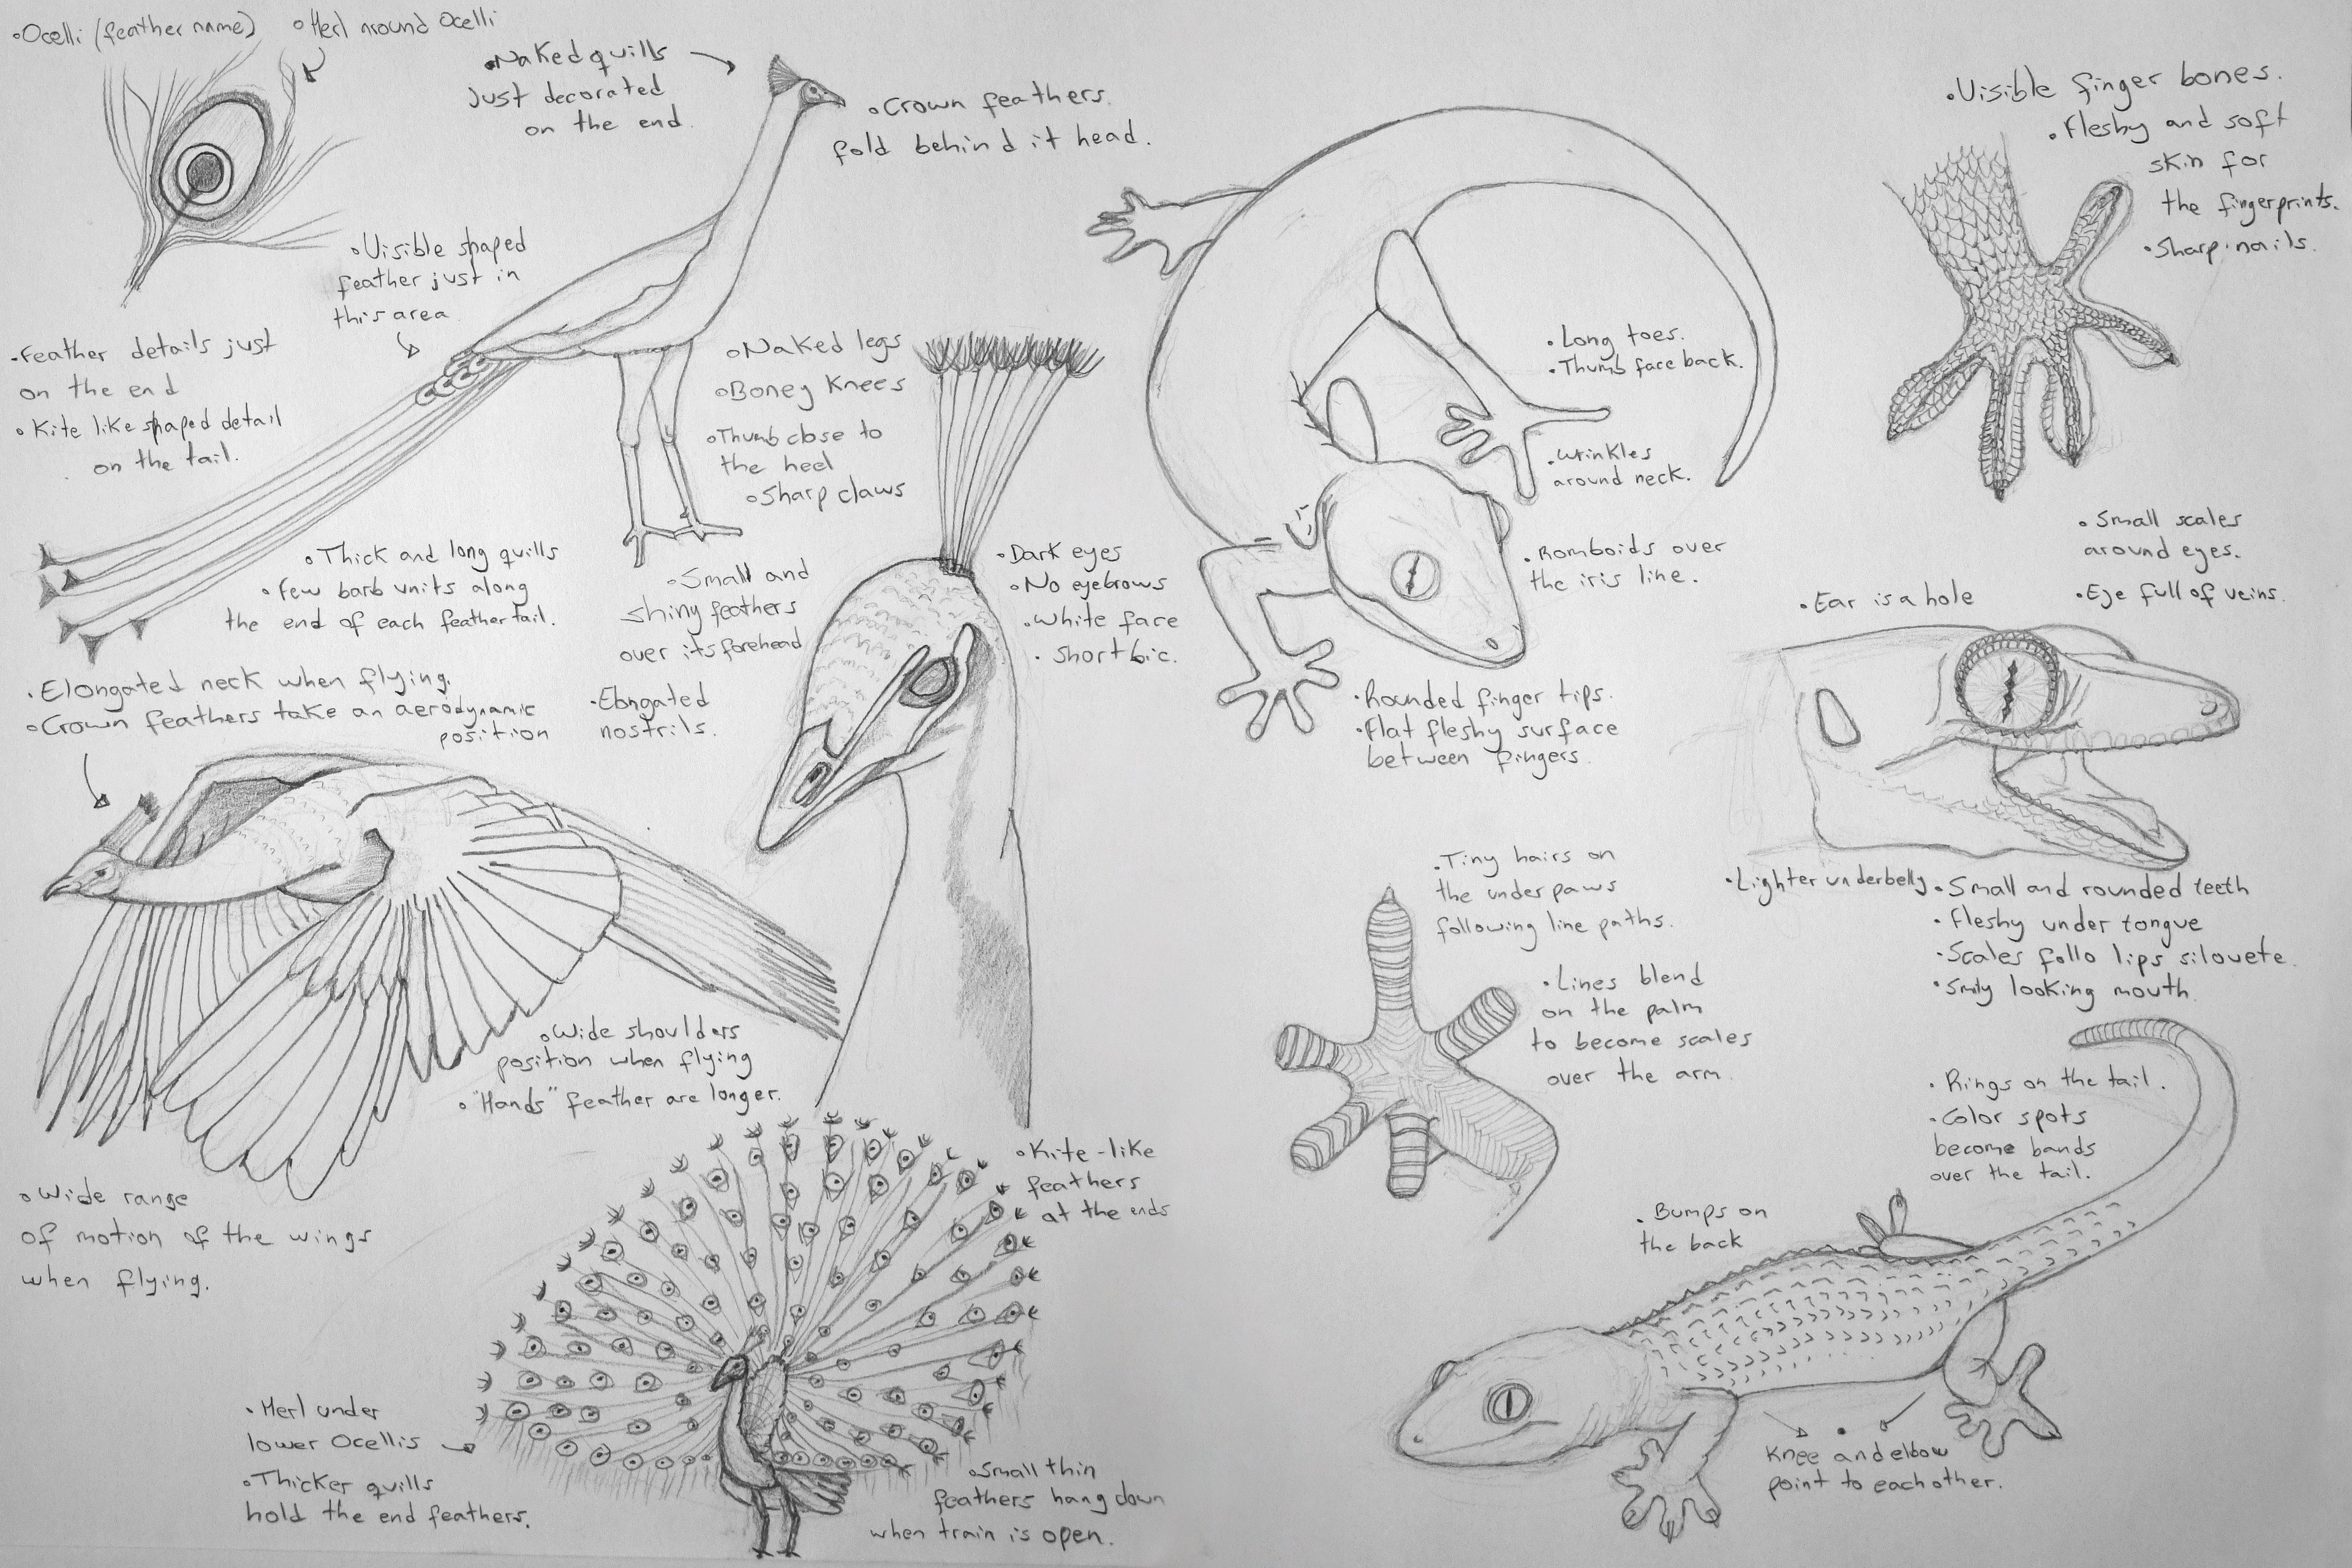 •Ocelli (feather name)
•Herl around Ocelli
•Naked quills
Just decorated
on the end.
•Crown feathers.
fold behind it head.
•Visible shaped
feather just in
this area
•Feather details just
on the end
•Kite like shaped detail
on the tail.
•Naked legs
•Boney knees
•Thumb close to
the heel
•Sharp claws
•Thick and long quills
•Few barb units along
the end of each feather tail.
•Small and
shiny feathers
over its forehead
•Dark eyes
•No eyebrows
•White face
•Short bic.
•Elongated neck when flying.
•Crown feathers take an aerodynamic
position
•Elongated
nostrils.
•Wide shoulders
position when flying
•"Hands" feather are longer.
•Wide range
of motion of the wings
when flying.
•Kite-like
feathers
at the ends
•Herl under
lower Ocellis
•Thicker quills
hold the end feathers.
•Small thin
feathers hang down
when train is open.
•Visible finger bones.
•Fleshy and soft
skin for
the fingerprints.
•Sharp nails.
•Long toes.
•Thumb face back.
•Wrinkles
around neck.
•Romboids over
the iris line.
•Rounded finger tips.
•Flat fleshy surface
between fingers.
•Small scales
around eyes.
•Ear is a hole
•Eye full of veins.
•Lighter underbelly
•Small and rounded teeth
•Fleshy under tongue
•Scales follo lips silouete.
•Smily looking mouth.
•Tiny hairs on
the under paws
following line paths.
•Lines blend
on the palm
to become scales
over the arm.
•Rings on the tail.
•Color spots
become bands
over the tail.
•Bumps on
the back
•
Knee and elbow
point to each other.